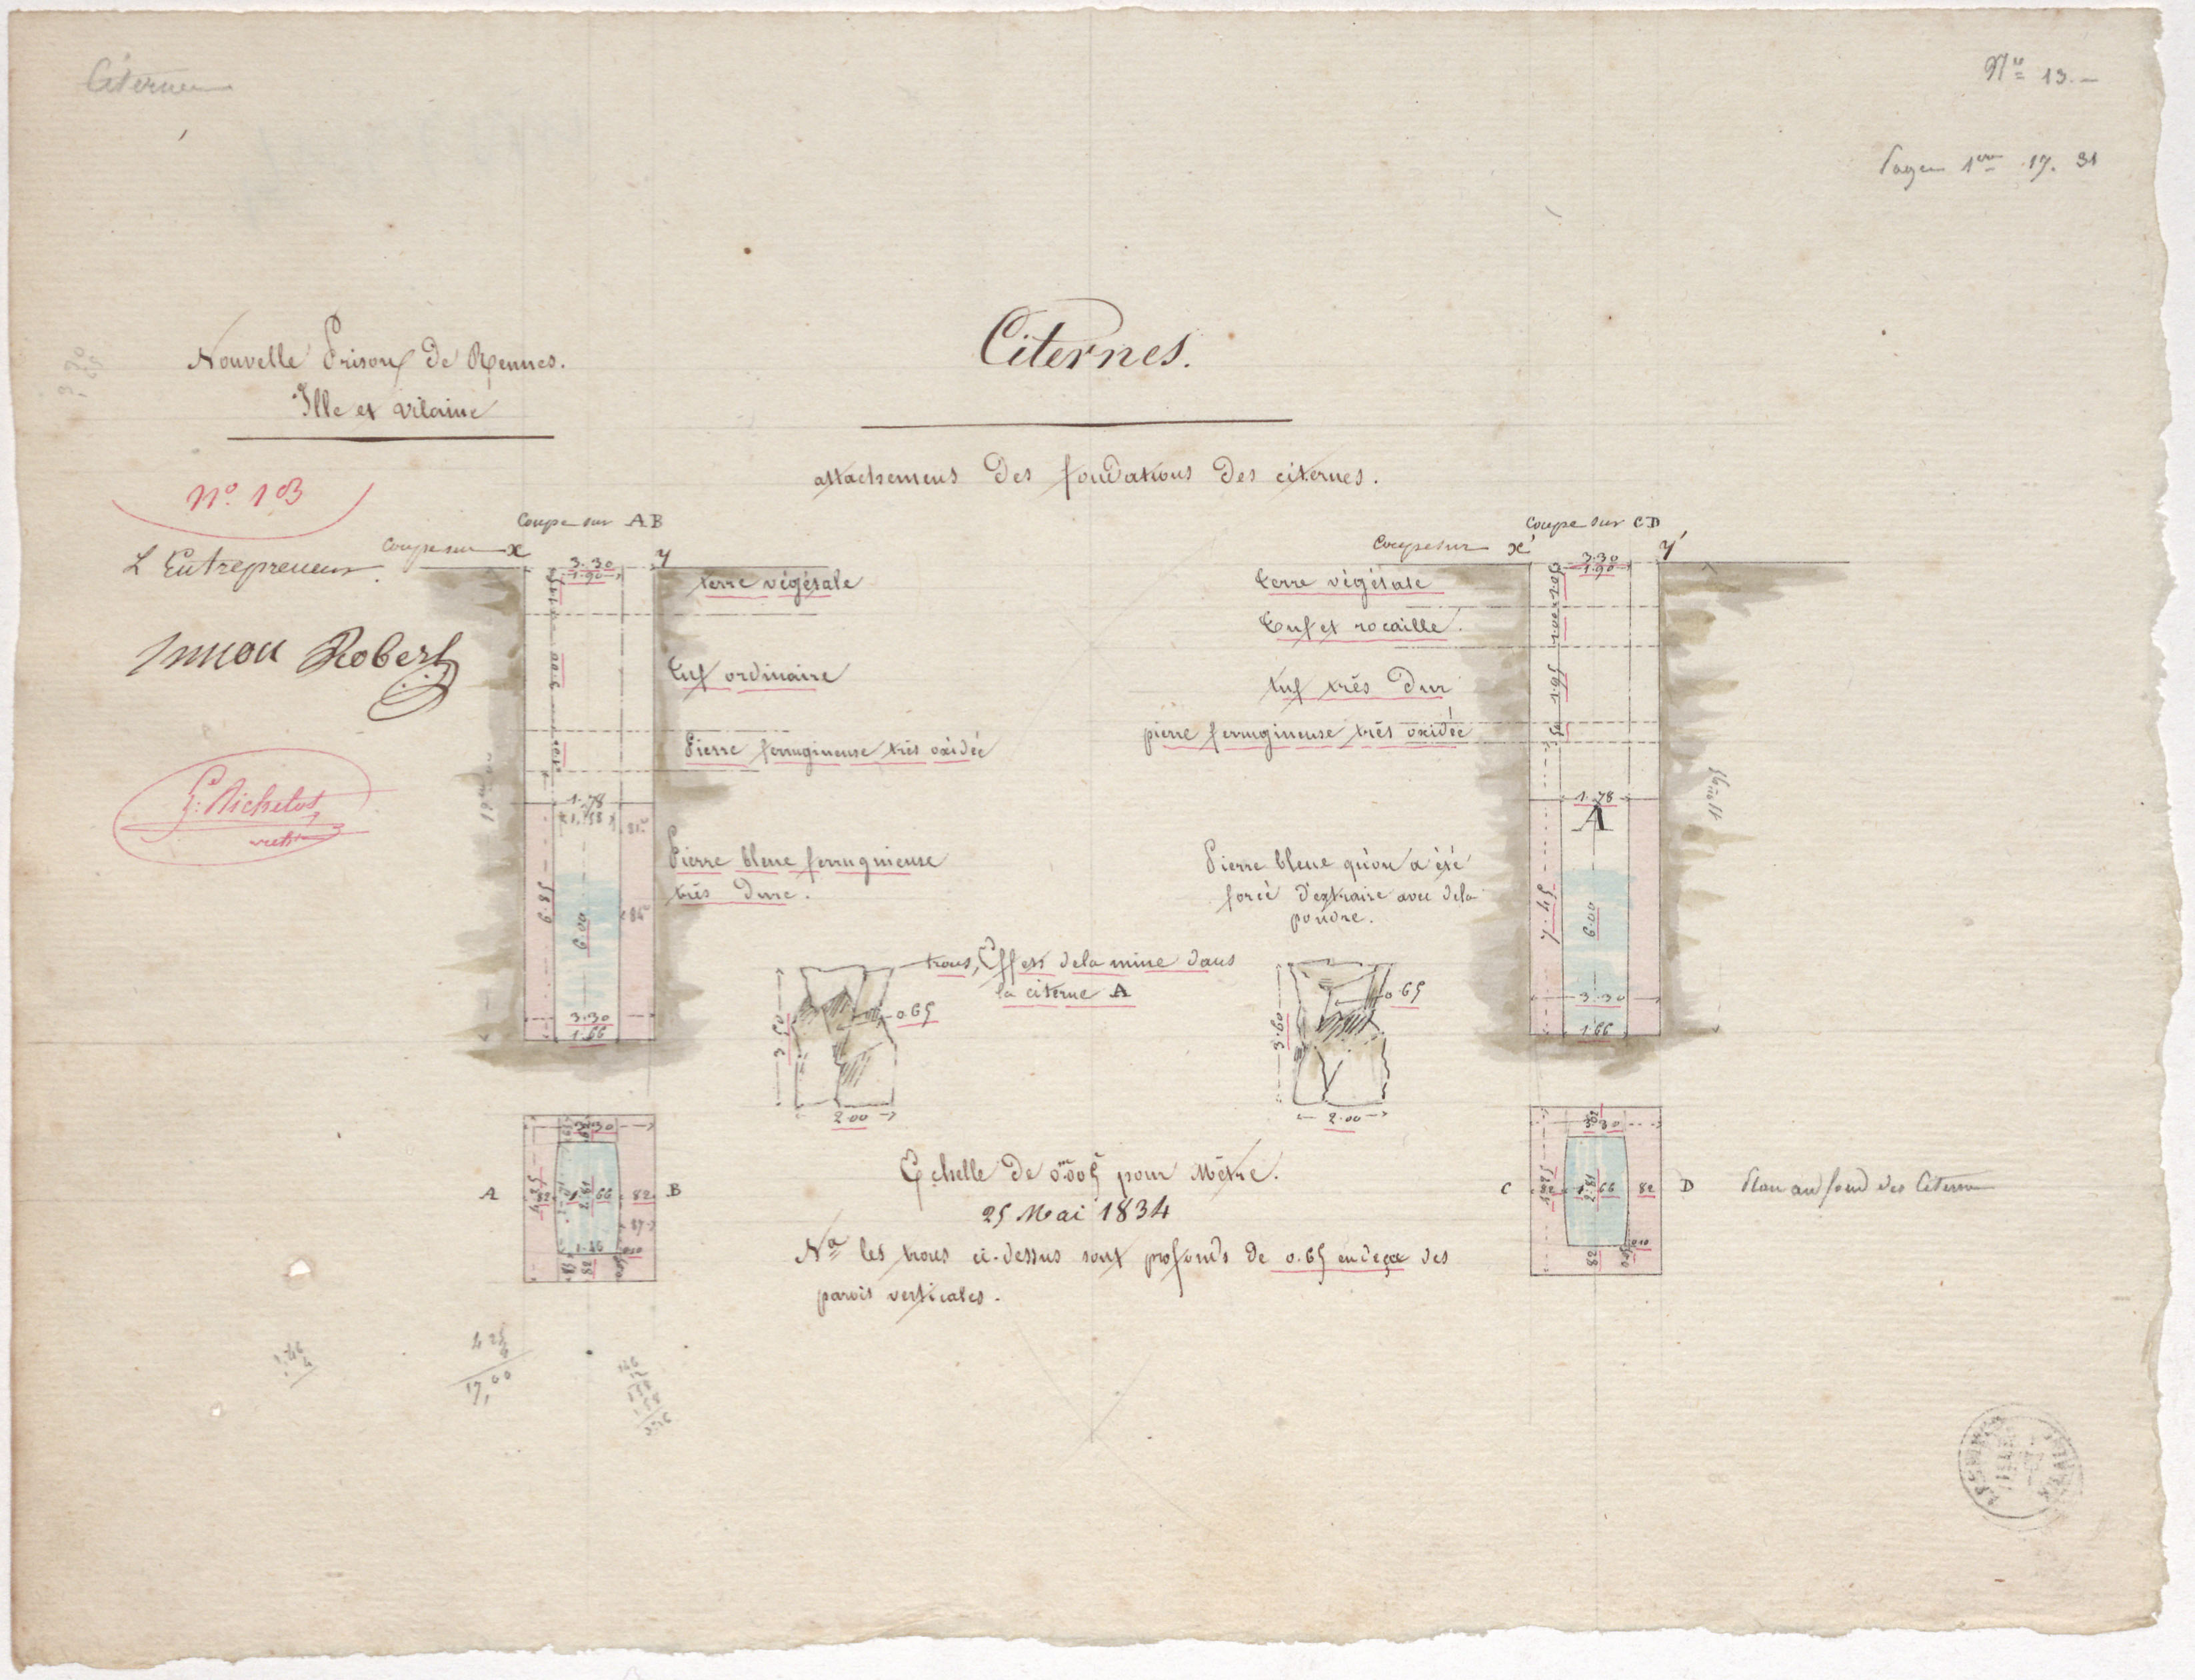 Citernes
Nº 13.
Pages 1ere 17. 31
Nouvelle Prison de Rennes.
Ille et Vilaine
Citernes.
attachemens des fondations des citernes.
Nº 103
L'Entrepreneur
Robert
Coupe sur AB
Coupe sur x y
3.30
1.90
terre végétale
tuf ordinaire
3.00
Pierre ferrugineuse très oxidée
1.78
1.58
Pierre bleue ferrugineuse
très dure.
6.85
6.00
3.30
1.66
Coupe sur CD
Coupe sur x' y'
3.30
1.90
terre végétale
Tuf et rocaille.
tuf très dur
1.95
pierre ferrugineuse très oxidée
1.78
A
Pierre bleue qu'on a été
forcé d'extraire avec de la
poudre.
7.45
6.00
3.30
1.66
trous, Effet de la mine dans
la citerne A
0.65
3.50
2.00
0.65
3.60
2.00
A
3.30
4.25
82
1.66
2.81
82
B
87
1.46
82
C
3.30
82
1.66
2.81
82
D
82
Plan au fond des Citernes
Echelle de 0m005 pour Mètre.
25 Mai 1834
Na les trous ci-dessus sont profonds de 0.65 en deçà des
parois verticales.
4 25
4
17,00